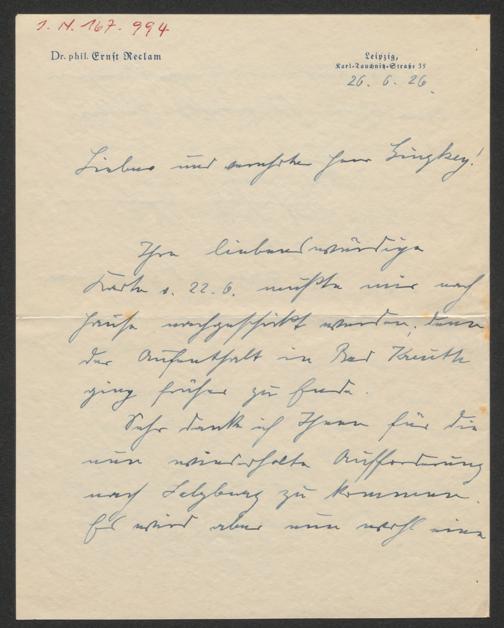 I. N. 167.994
Dr. phil. Ernst Reclam
Leipzig,
Karl-Tauchnitz-Straße 35
26. 6. 26.
Lieber und verehrter Herr Ginzkey!
Ihre liebenswürdige
Karte v. 22.6. mußte mir nach
Hause nachgeschickt werden, denn
der Aufenthalt in Bad Kreuth
ging früher zu Ende.
Sehr danke ich Ihnen für die
nun wiederholte Aufforderung
nach Salzburg zu kommen.
Es wird aber nun wohl eine